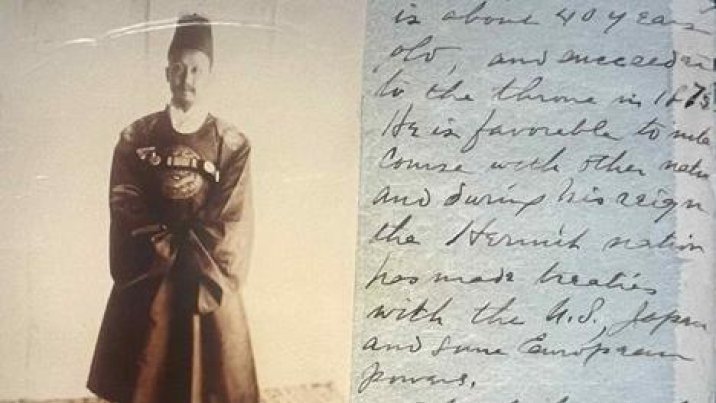 is about 40 years
old, and succeeded
to the throne in 1873
He is favorable to
course with other
and during his reign
the Hermit nation
has made treaties
with the U.S., Japan
and some European
powers.